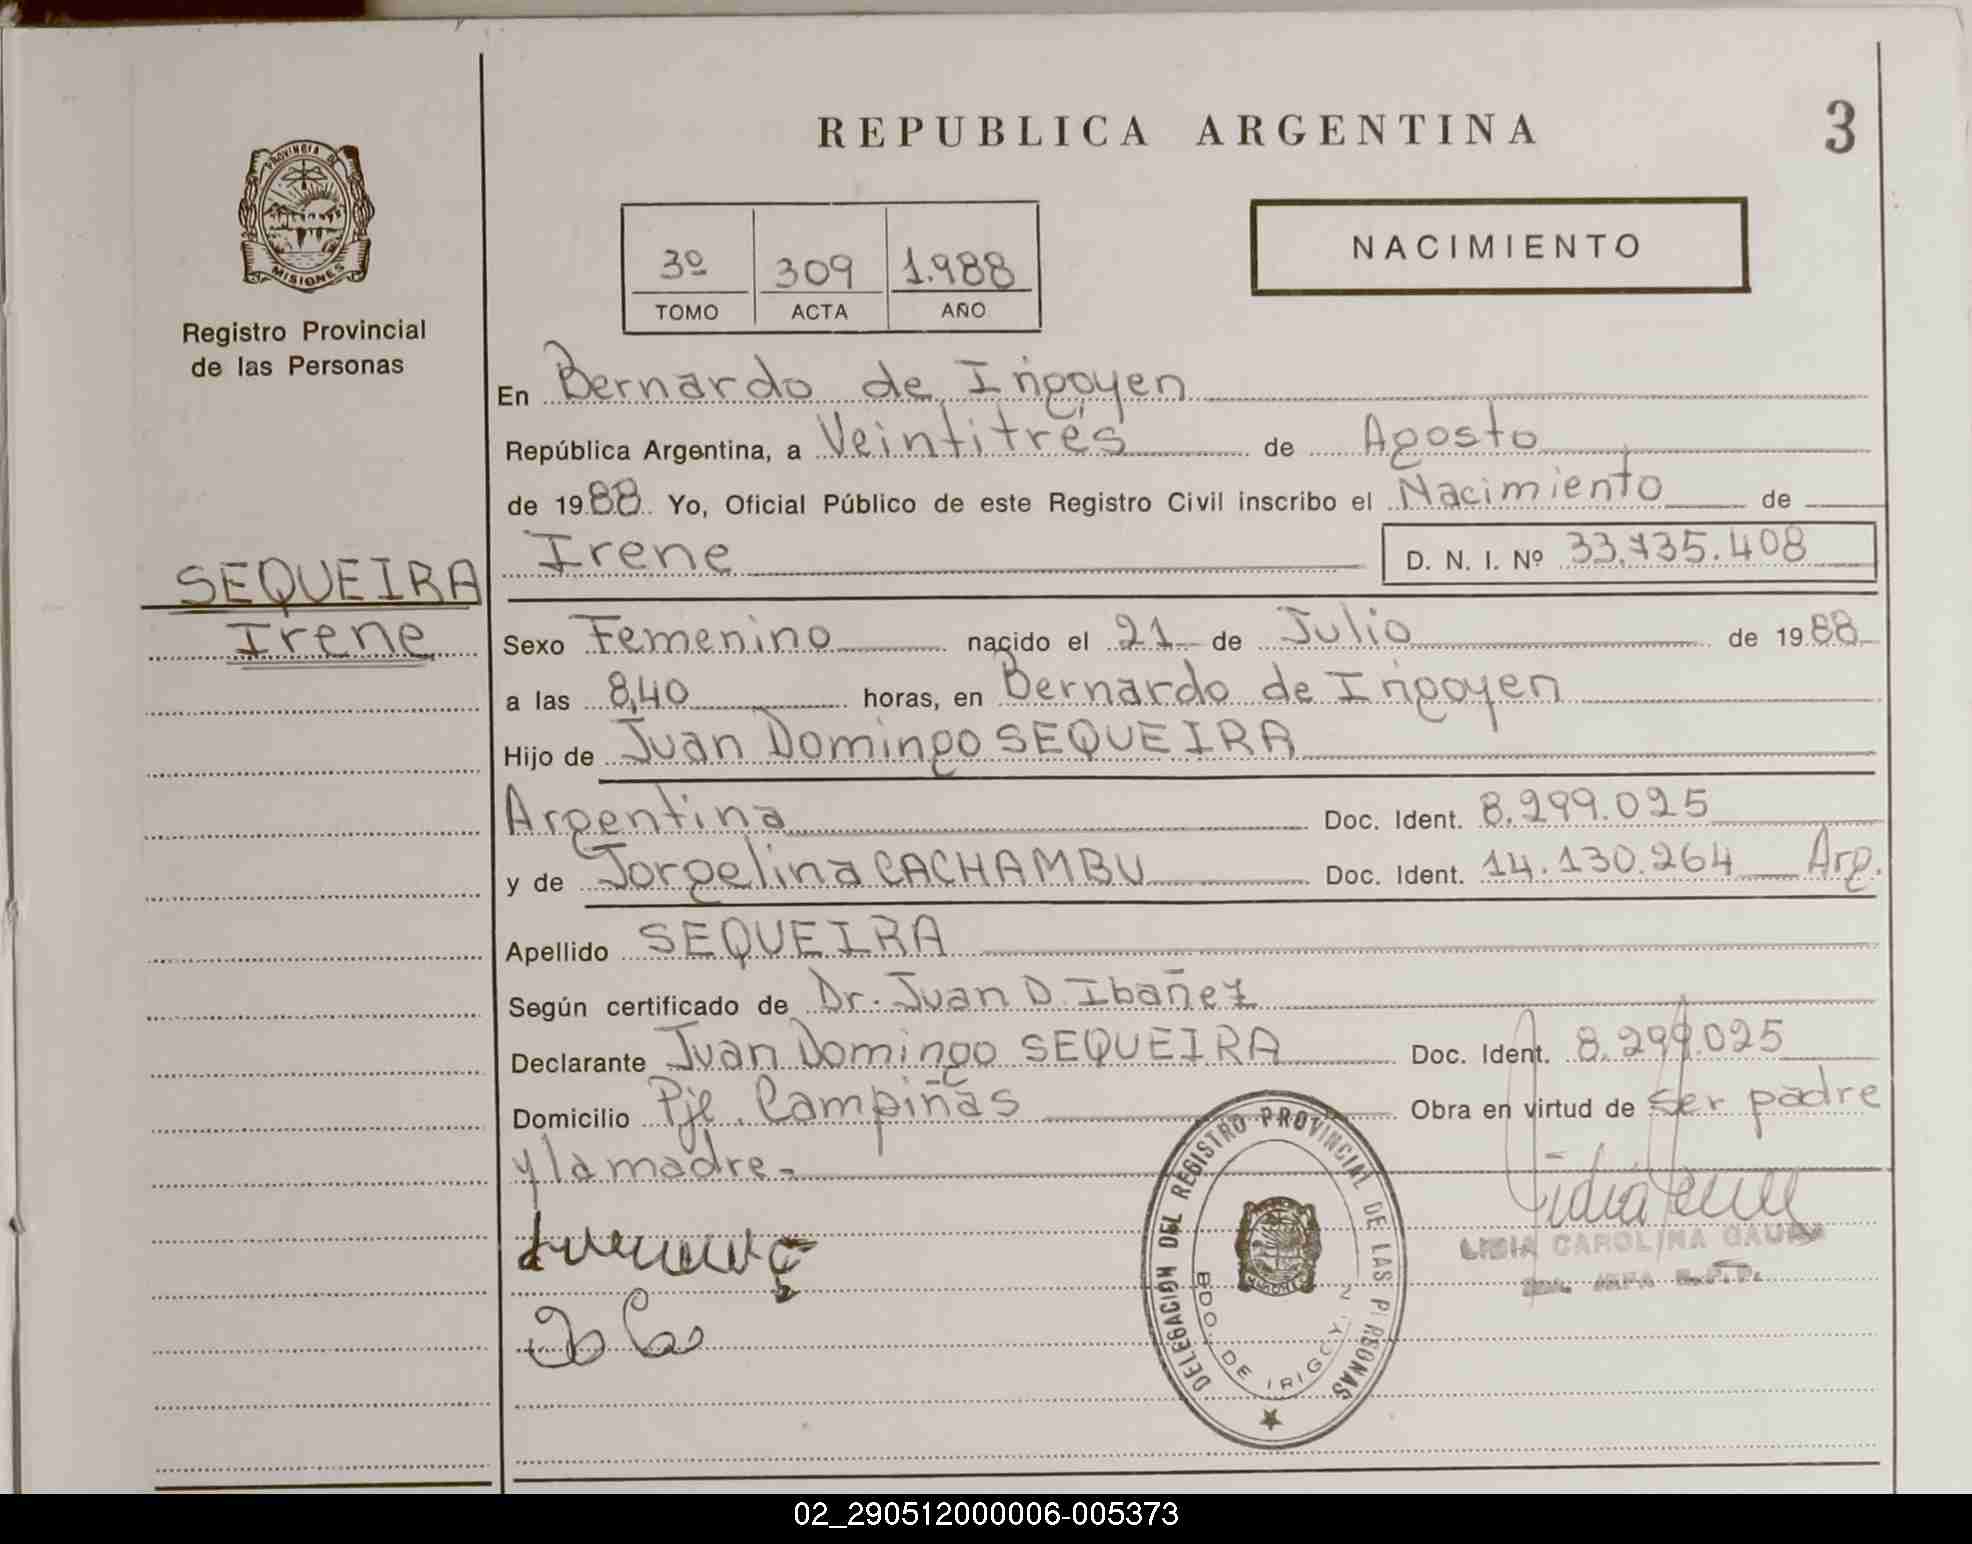 REPUBLICA ARGENTINA
3
PROVINCIA DE
MISIONES
Registro Provincial
de las Personas
3º 309 1.988
TOMO ACTA AÑO
NACIMIENTO
En Bernardo de Irigoyen
República Argentina, a Veintitrés de Agosto
de 1988 Yo, Oficial Público de este Registro Civil inscribo el Nacimiento de
Irene D. N. I. Nº 33.735.408
SEQUEIRA
Irene
Sexo Femenino nacido el 21 de Julio de 1988
a las 8,40 horas, en Bernardo de Irigoyen
Hijo de Juan Domingo SEQUEIRA
Argentina Doc. Ident. 8.299.025
y de Jorgelina CACHAMBU Doc. Ident. 14.130.264 Arg.
Apellido SEQUEIRA
Según certificado de Dr. Juan D. Ibañez
Declarante Juan Domingo SEQUEIRA Doc. Ident. 8.299.025
Domicilio Pje. Campiñas Obra en virtud de ser padre
y la madre.-
DELEGACION DEL REGISTRO PROVINCIAL DE LAS PERSONAS
BDO. DE IRIGOY.
LIDIA CAROLINA
02_290512000006-005373